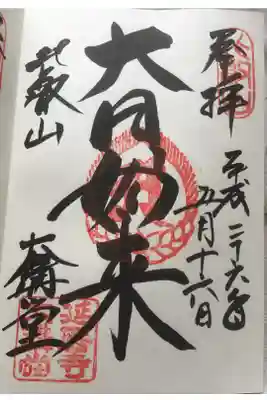 奉拝
平成二十六年
五月十六日
大日如来
比叡山
大講堂
延暦寺